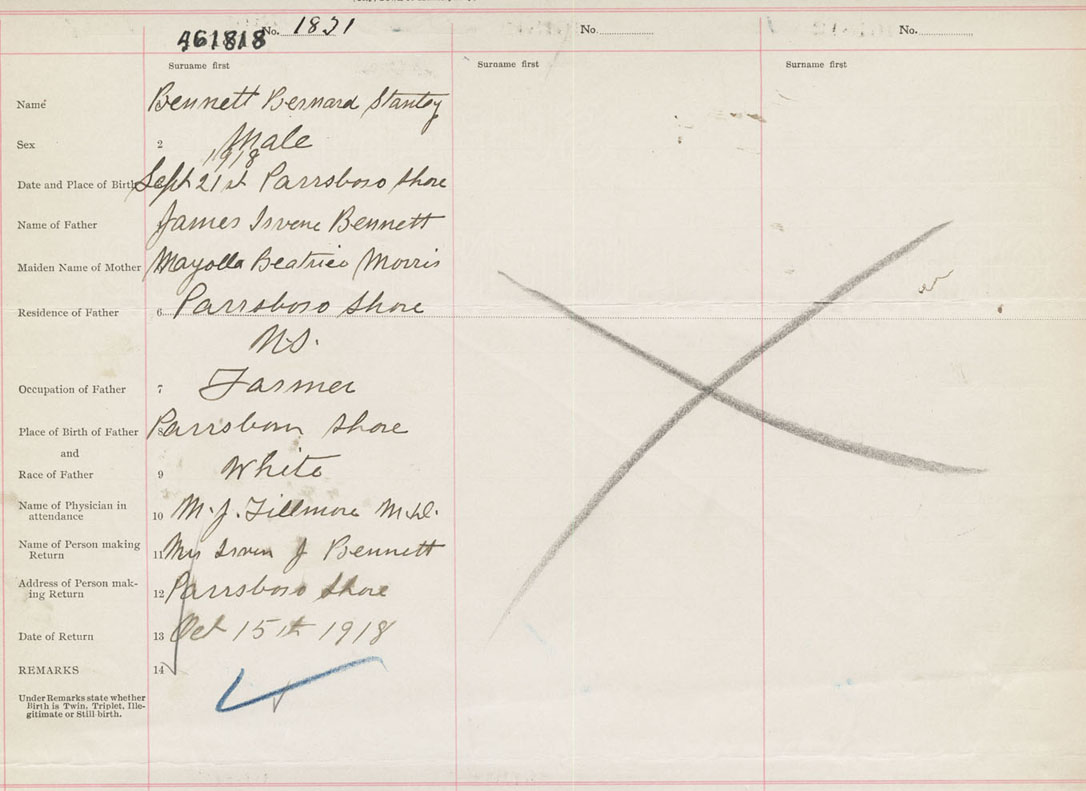 461818 No. 1831 No. No.
Surname first Surname first Surname first
Name Bennett Bernard Stanley
Sex 2 Male
1918
Date and Place of Birth Sept 21st Parrsboro Shore
Name of Father James Irvene Bennett
Maiden Name of Mother Mayolla Beatrice Morris
Residence of Father 6 Parrsboro Shore
N.S.
Occupation of Father 7 Farmer
Place of Birth of Father 8 Parrsboro Shore
and
Race of Father 9 White
Name of Physician in
attendance 10 M. J. Fillmore M.D.
Name of Person making
Return 11 Mrs Irven J Bennett
Address of Person mak-
ing Return 12 Parrsboro Shore
Date of Return 13 Oct 15th 1918
REMARKS 14
Under Remarks state whether
Birth is Twin, Triplet, Ille-
gitimate or Still birth.